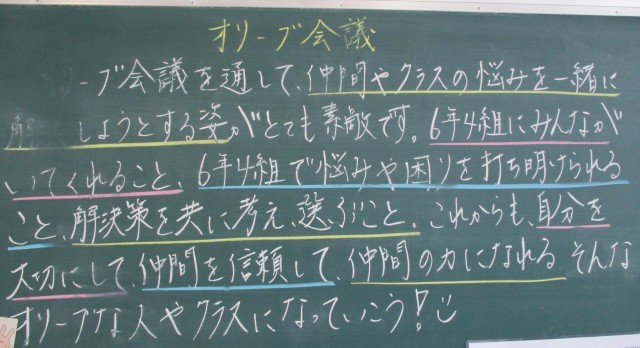 オリーブ会議
ーブ会議を通して、仲間やクラスの悩みを一緒に
解 しようとする姿がとても素敵です。6年4組にみんなが
いてくれること、6年4組で悩みや困りを打ち明けられる
こと、解決策を共に考え、選ぶこと、これからも、自分を
大切にして、仲間を信頼して、仲間の力になれる そんな
オリーブな人やクラスになっていこう!